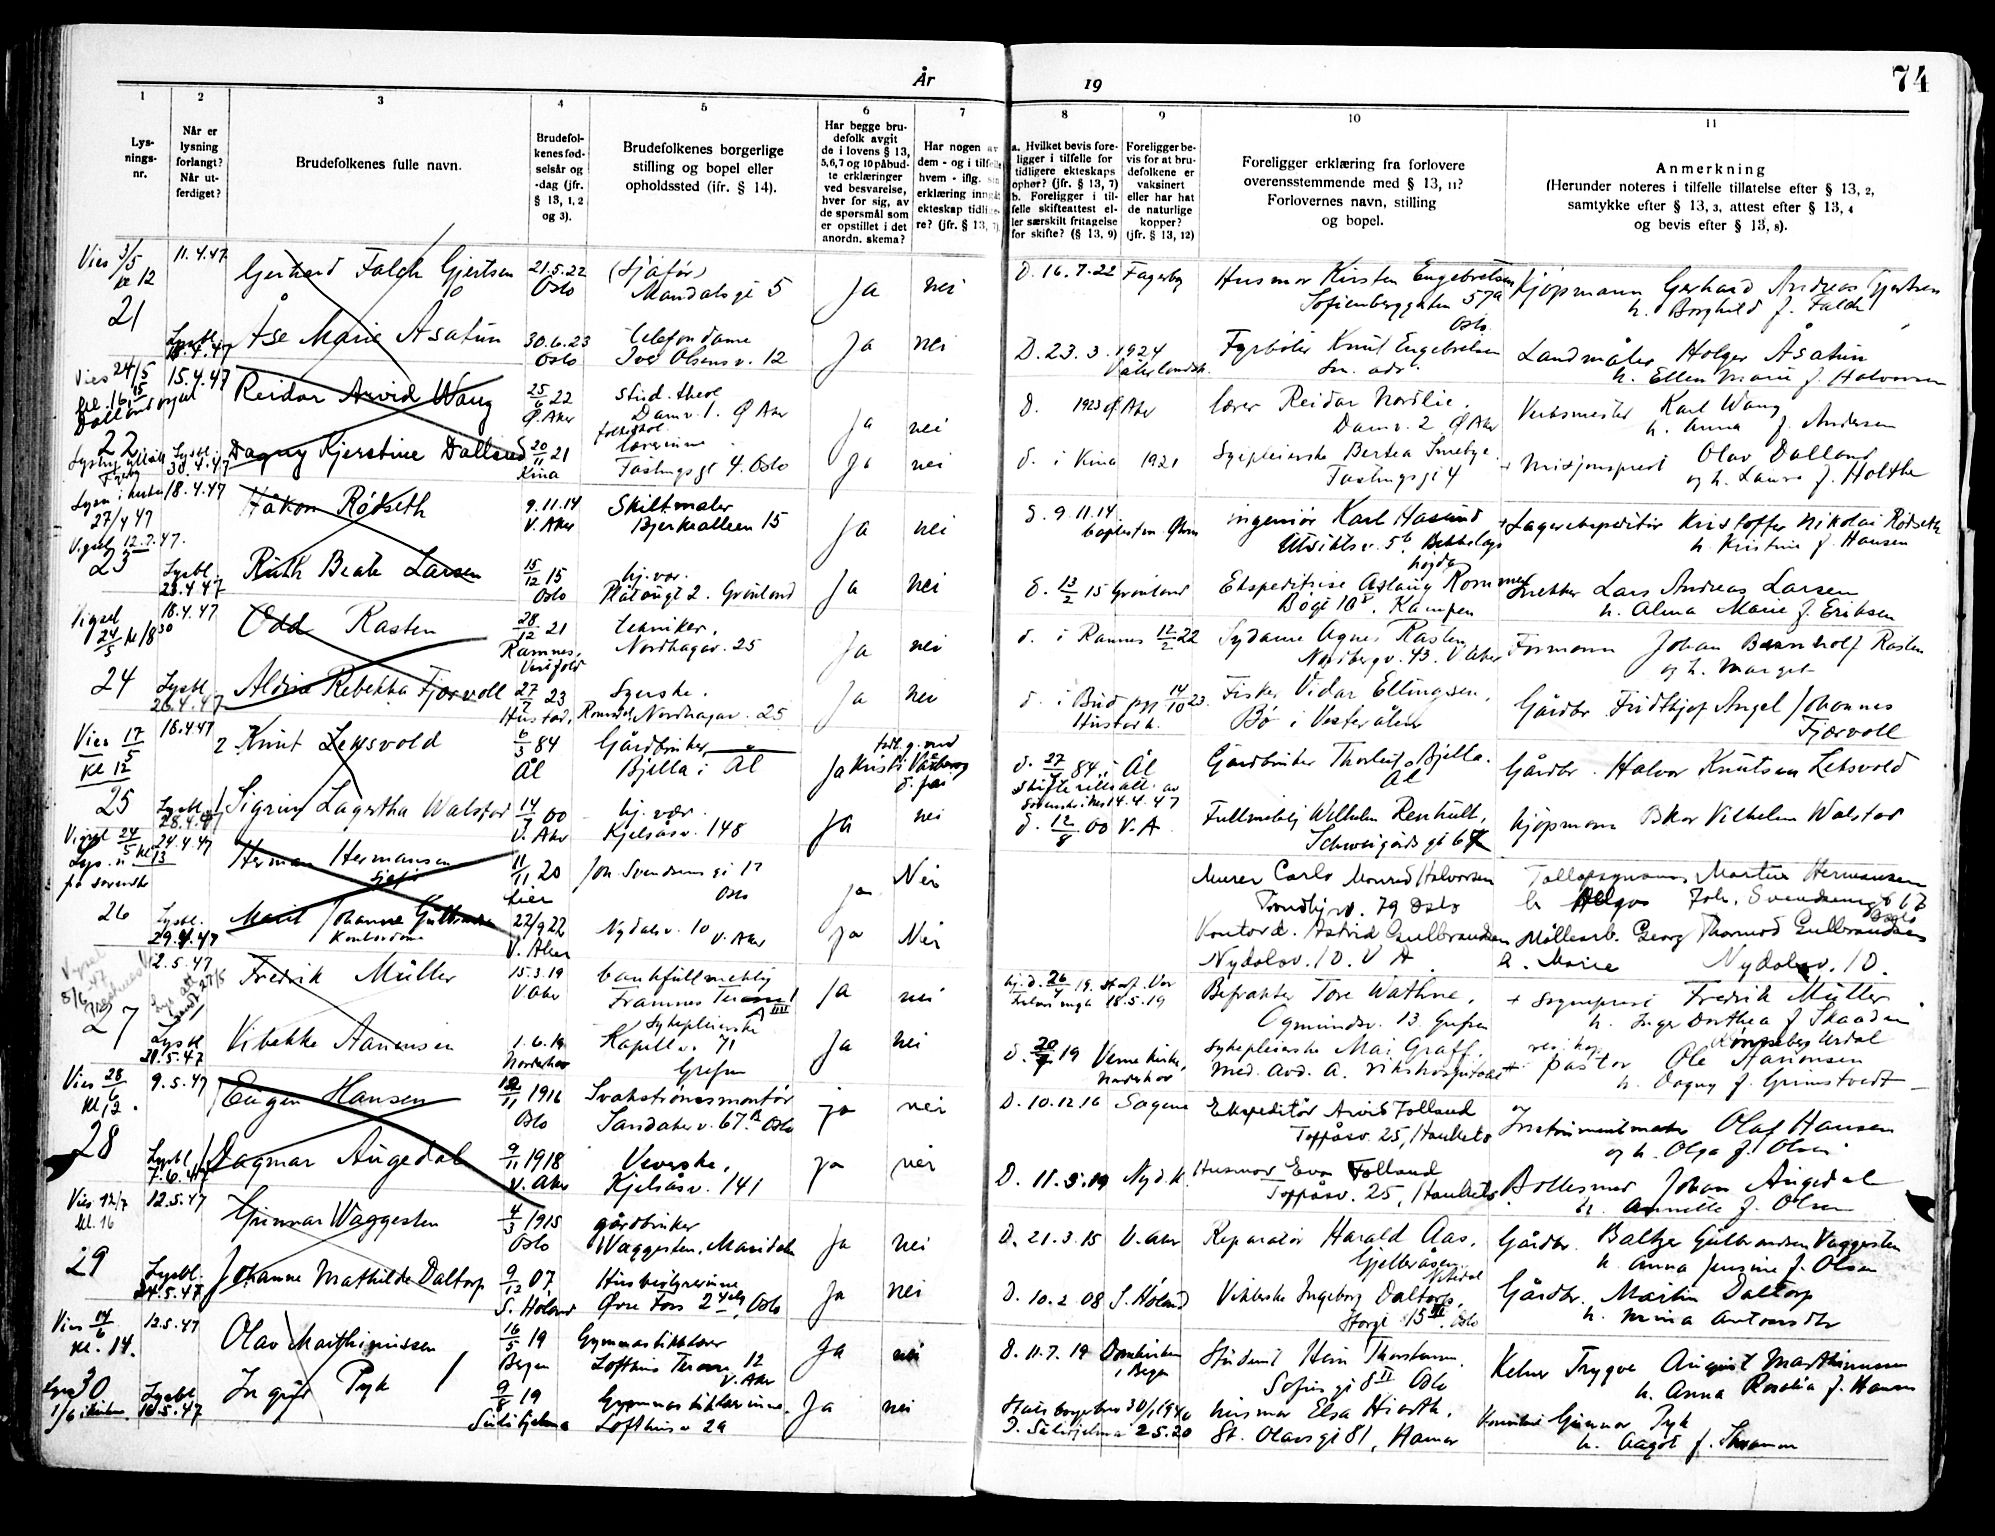 År 19
74
1
2
3
4
5
6
7
8
9
10
11
Lys-
nings-
nr.
Når er
lysning
forlangt?
Når ut-
ferdiget?
Brudefolkenes fulle navn.
Brudefol-
kenes fød-
selsår og
-dag (jfr.
§ 13, 1, 2
og 3).
Brudefolkenes borgerlige
stilling og bopel eller
opholdssted (jfr. § 14).
Har begge bru-
defolk avgit
de i lovens § 13,
5, 6, 7 og 10 påbud-
te erklæringer
ved besvarelse,
hver for sig, av
de spørsmål som
er opstillet i det
anordn. skema?
Har nogen av
dem - og i tilfelle
hvem - iflg. sin
erklæring inngått
ekteskap tidlige-
re? (jfr. § 13, 7)
a. Hvilket bevis fore-
ligger i tilfelle for
tidligere ekteskaps
ophør? (jfr. § 13, 7)
b. Foreligger i til-
felle skifteattest el-
ler særskilt fritagelse
for skifte? (§ 13, 9)
Foreligger be-
vis for at bru-
defolkene er
vaksinert
eller har hat
de naturlige
kopper?
(jfr. § 13, 12)
Foreligger erklæring fra forlovere
overensstemmende med § 13, 11?
Forlovernes navn, stilling
og bopel.
Anmerkning
(Herunder noteres i tilfelle tillatelse efter § 13, 2,
samtykke efter § 13, 3, attest efter § 13, 4
og bevis efter § 13, 8).
Vies 3/5
kl 12
21
11.4.47
Gerhard Falch Gjertsen
21.5.22
Oslo
(Sjåfør)
Mandalsgt 5
Ja
nei
D. 16.7.22
Fagerborg
Husmor Kirsten Engebretsen
Sofienberggaten 57a
Oslo
Kjøpmann Gerhard Andreas Gjertsen
h. Borghild f. Falch
Lysbl.
Åse Marie Åsatun
30.6.23
Oslo
telefondame
Iver Olsens v. 12
Ja
nei
D. 23.3.1924
Fyrbøter Knut Engebretsen
Sm. adr.
Landmåler Holger Åsatun
h. Ellen Marie f. Halvorsen
Vies 24/5
kl. 16,15
22
15.4.47
Reidar Arvid Wang
25/6 22
Ø. Aker
stud. theol
Damv. 1. Ø Aker
Ja
nei
D. 1923 Ø. Aker
lærer Reidar Nordlie.
Damv. 2 Ø Aker
Verksmester Karl Wang
h. Anna f. Andersen
Lysbl.
30.4.47
Dagny Kjerstine Dalland
20/11 21
Kina
lærerinne
Fastingsgt 4. Oslo
Ja
nei
D. i Kina 1921
Sykepleierske Bertea
Fastingsgt 4
Misjonsprest Olav Dalland
og h. Laura f. Holthe
27/4 47
Vigsel 12.7.47.
23
18.4.47
Håkon Rødseth
9.11.14
V. Aker
Skiltmaler
Bjerkealleen 15
Ja
nei
D. 9.11.14
ingeniør Karl Haslund
Utsiktsv. 5b. Bekkelags
høgda
Lagerekspeditør Kristoffer Nikolai Rødseth
h. Kristine f. Hansen
Lysbl.
28.4.47
Ruth Beate Larsen
15/12 15
Oslo
hj. vær.
Platougt 2. Grønland
Ja
nei
D. 13/2 15 Grønland
Ekspeditrise Aslaug Rommen
Bøgt 10 V. Kampen
Snekker Lars Andreas Larsen
h. Alma Marie f. Eriksen
Vigsel
24/5 kl 18 30
24
18.4.47
Odd Rasten
28/12 21
Ramnes,
Vestfold
tekniker.
Nordhagav. 25
Ja
nei
D. i Ramnes 12/2 22
Sydame Agnes Rasten
Nordbergv. 43. V Aker
Formann Johan Rasten
og h. Marget
Lysbl.
26.4.47
Aldine Rebekka Fjærvoll
27/7 23
Hustad,
Romsdal
Syerske.
Nordhagav. 25
Ja
nei
D. i Bud pgj. 14/10 23
Hustad k.
Fisker Vidar Ellingsen.
Bø i Vesterålen
Gårdbr. Fridthjof Angel Johannes
Fjærvoll
Vies 17/5
Kl 12
25
16.4.47
Knut Leksvold
6/3 84
Ål
Gårdbruker
Bjella i Ål
Ja
D. 27/4 84, i Ål
Gårdbruker Thorleif Bjella.
Ål
Gårdbr. Halvor Knutsen Leksvold
Lysbl.
28.4.47
Sigrun Lagertha Walstad
14/7 00
V. Aker
hj. vær.
Kjelsåsv. 148
Ja
nei
D. 12/8 00 V. A
Fullmektig Wilhelm Renhult,
Schweigårds gt 64
kjøpmann Vilhelm Walstad
Vigsel 24/5 kl 13
26
24.4.47
Herman Hermansen
sjåfør
11/11 20
Lier
Joh Svendsens gt 17
Oslo
Ja
Nei
Murer Carlo Monrad Halvorsen
Trondhj.v. 79 Oslo
Martin Hermansen
h. Helga Joh. Svendsens g 17
Oslo
Lysbl.
29.4.47
Marit Johanne Gulbrandsen
Kontordame
22/9 22
V. Aker
Nydalsv. 10 V. Aker
ja
Nei
Kontord. Astrid Gulbrandsen
Nydalsv. 10. V A.
Møllearb. Georg Thormod Gulbrandsen
h. Marie Nydalsv. 10.
27
2.5.47
Fredrik Müller
15.3.19
V Aker
bankfullmektig
Framnes Terasse 1
Ja
nei
Befrakter Tore Wathne,
Ogmundsv. 13 Grefsen
+ Sogneprest Fredrik Müller
h. Inger Dorthea f. Skaaden
Lysbl
21.5.47
Vibekke Aanonsen
1.6.19
Norderhov
Sykepleierske
Kapellv. 71
Grefsen
Ja
nei
D. 20/7 19 Verne kirke,
Norderhov
Sykepleierske Mai Graff.
Med. avd. A. rikshospitalet
res. kap.
+ pastor Ole Aanonsen
h. Dagny f. Grimstvedt
Vies 28/6
kl 12.
28
9.5.47
Eugen Hansen
12/11 1916
Oslo
Svakstrømsmontør
Sandakerv. 67.B Oslo
ja
nei
D. 10.12.16
Sagene
Ekspeditør Arvid Folland
Toppåsv. 25, Hauketo
Instrumentmaker Olaf Hansen
og h. Olga f. Olsen
Lysbl
7.6.47
Dagmar Augedal
9/11 1918
V. Aker
Veverske,
Kjelsåsv. 141
ja
nei
D. 11.5.19
Nyd. k.
Husmor Eva Folland
Toppåsv. 25, Hauketo
Johan Augedal
h. Annette f. Olsen
Vies 12/7
kl. 16
29
12.5.47
Gunnar Waggesten
4/3 1915
Oslo
gårdbruker
Waggesten, Maridalen
Ja
nei
D. 21.3.15
V. Aker
Reparatør Harald Aas,
Gjelleråsen
Nitedal
Gårdbr. Baltzer Gulbrandsen Vaggesten
h. Anna Jensine f. Olsen
Lysbl.
24.5.47
Johanne Mathilde Daltorp
9/12 07
S. Høland
Husbestyrerinne
Øvre Foss 2, Oslo
Ja
nei
D. 10.2 08
S. Høland
Vikleske Ingeborg Daltorp,
Storgt 15 III. Oslo
Gårdbr. Martin Daltorp
h. Mina Antonsdtr
Vies 14/6
kl. 14.
30
12.5.47
Olav Marthinussen
16/5 19
Bergen
Gymnastikklærer
Lofthus Terasse 12
V. Aker
Ja
nei
D. 11.7.19 Domkirken
i Bergen
Student Hein Thorstensen.
Sofies gt 8 II Oslo
Kelner Trygve August Marthinussen
h. Anna Rosalia f. Hansen
Lysbl
10.5.47
Ingrid Pyk
9/8 19
Sulitjelma
Gymnastikklærerinne.
Lofthusv 2a
Ja
nei
D. Sulitjelma 2.5.20
husmor Elsa Hiorth.
St. Olavsgt 81, Hamar
Gunnar Pyk
h. Aagot f.